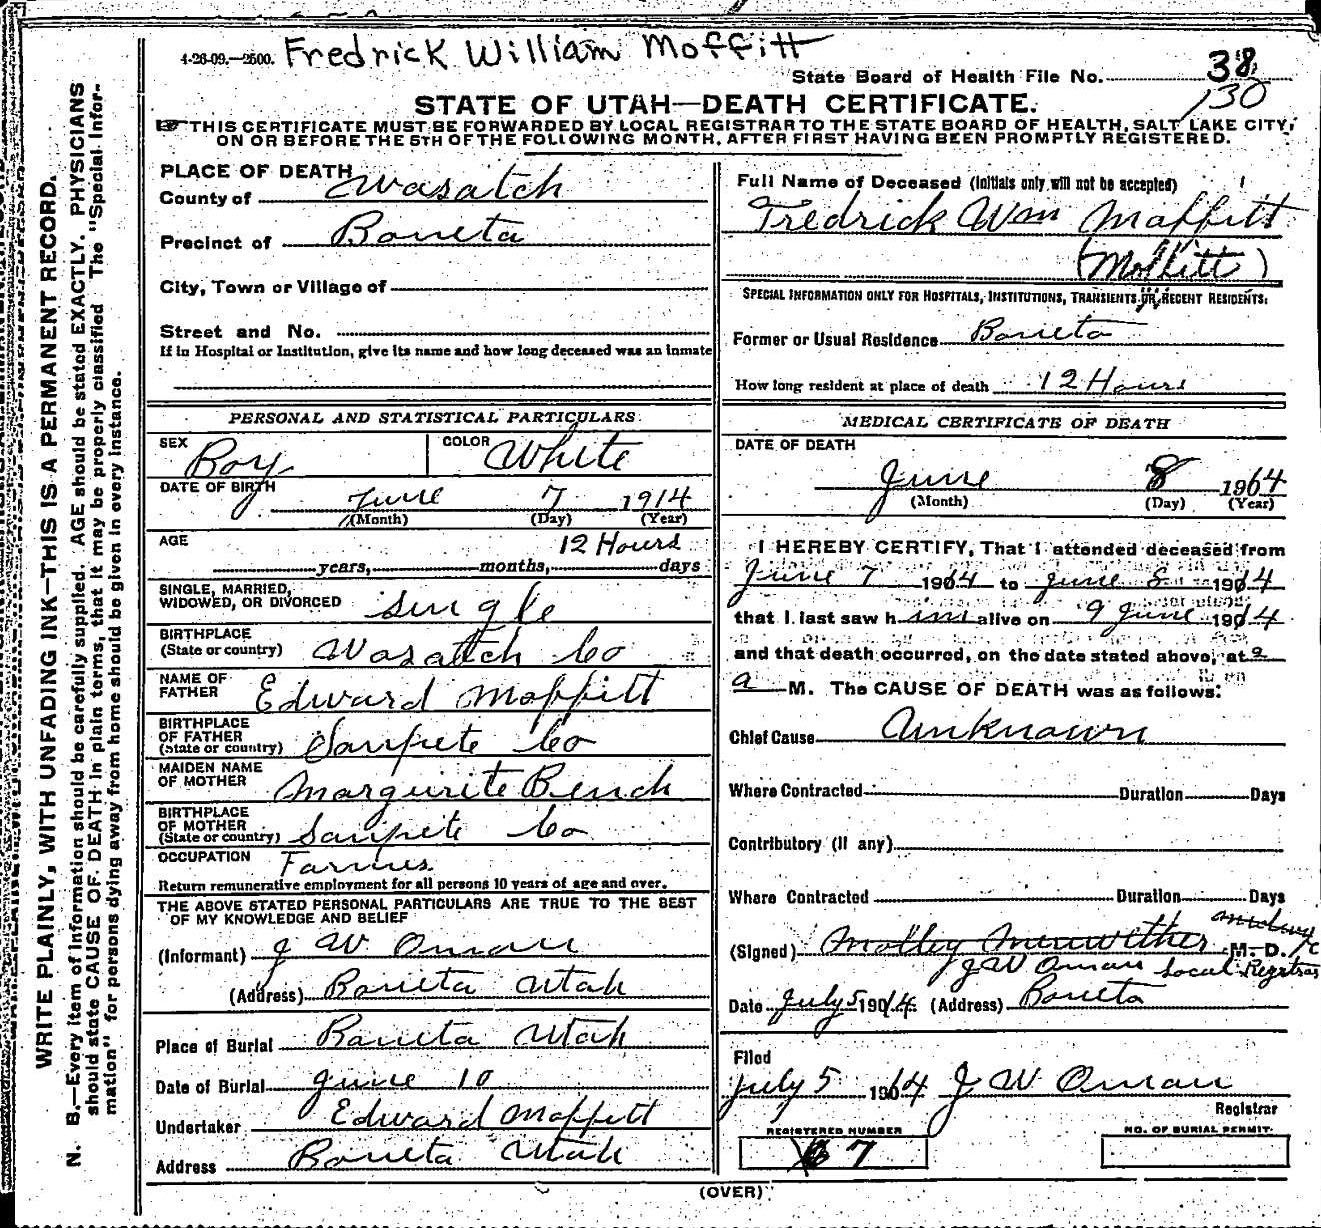 4-26-09.—2500. Fredrick William Moffitt
State Board of Health File No. 38
130
STATE OF UTAH—DEATH CERTIFICATE.
THIS CERTIFICATE MUST BE FORWARDED BY LOCAL REGISTRAR TO THE STATE BOARD OF HEALTH, SALT LAKE CITY,
ON OR BEFORE THE 5TH OF THE FOLLOWING MONTH, AFTER FIRST HAVING BEEN PROMPTLY REGISTERED.
WRITE PLAINLY, WITH UNFADING INK—THIS IS A PERMANENT RECORD.
N. B.—Every item of information should be carefully supplied. AGE should be stated EXACTLY. PHYSICIANS
should state CAUSE OF DEATH in plain terms, that it may be properly classified The "Special Infor-
mation" for persons dying away from home should be given in every instance.
PLACE OF DEATH
County of Wasatch
Precinct of Boneta
City, Town or Village of
Street and No.
If in Hospital or Institution, give its name and how long deceased was an inmate
PERSONAL AND STATISTICAL PARTICULARS
SEX Boy COLOR White
DATE OF BIRTH June 7 1914
(Month) (Day) (Year)
AGE 12 Hours
years, months, days
SINGLE, MARRIED,
WIDOWED, OR DIVORCED Single
BIRTHPLACE
(State or country) Wasatch Co
NAME OF
FATHER Edward Moffitt
BIRTHPLACE
OF FATHER
(State or country) Sanpete Co
MAIDEN NAME
OF MOTHER Margurite Bench
BIRTHPLACE
OF MOTHER
(State or country) Sanpete Co
OCCUPATION
Return remunerative employment for all persons 10 years of age and over.
THE ABOVE STATED PERSONAL PARTICULARS ARE TRUE TO THE BEST
OF MY KNOWLEDGE AND BELIEF
(Informant) J W Oman
(Address) Boneta Utah
Place of Burial Boneta Utah
Date of Burial June 10
Undertaker Edward Moffitt
Address Boneta Utah
Full Name of Deceased (Initials only will not be accepted)
Fredrick Wm Moffitt
(Moffitt)
SPECIAL INFORMATION ONLY FOR HOSPITALS, INSTITUTIONS, TRANSIENTS OR RECENT RESIDENTS:
Former or Usual Residence Boneta
How long resident at place of death 12 Hours
MEDICAL CERTIFICATE OF DEATH
DATE OF DEATH
June 8 1914
(Month) (Day) (Year)
I HEREBY CERTIFY, That I attended deceased from
June 7 1914 to June 8 1914
that I last saw h im alive on 9 June 1914
and that death occurred, on the date stated above, at 2
a M. The CAUSE OF DEATH was as follows:
Chief Cause Unknown
Where Contracted Duration Days
Contributory (if any)
Where Contracted Duration Days
(Signed) Molley Meriwether M. D.
J W Oman Local Registrar
Date July 5 1914 (Address) Boneta
Filed
July 5 1914 J W Oman
Registrar
REGISTERED NUMBER
7
NO. OF BURIAL PERMIT
(OVER)